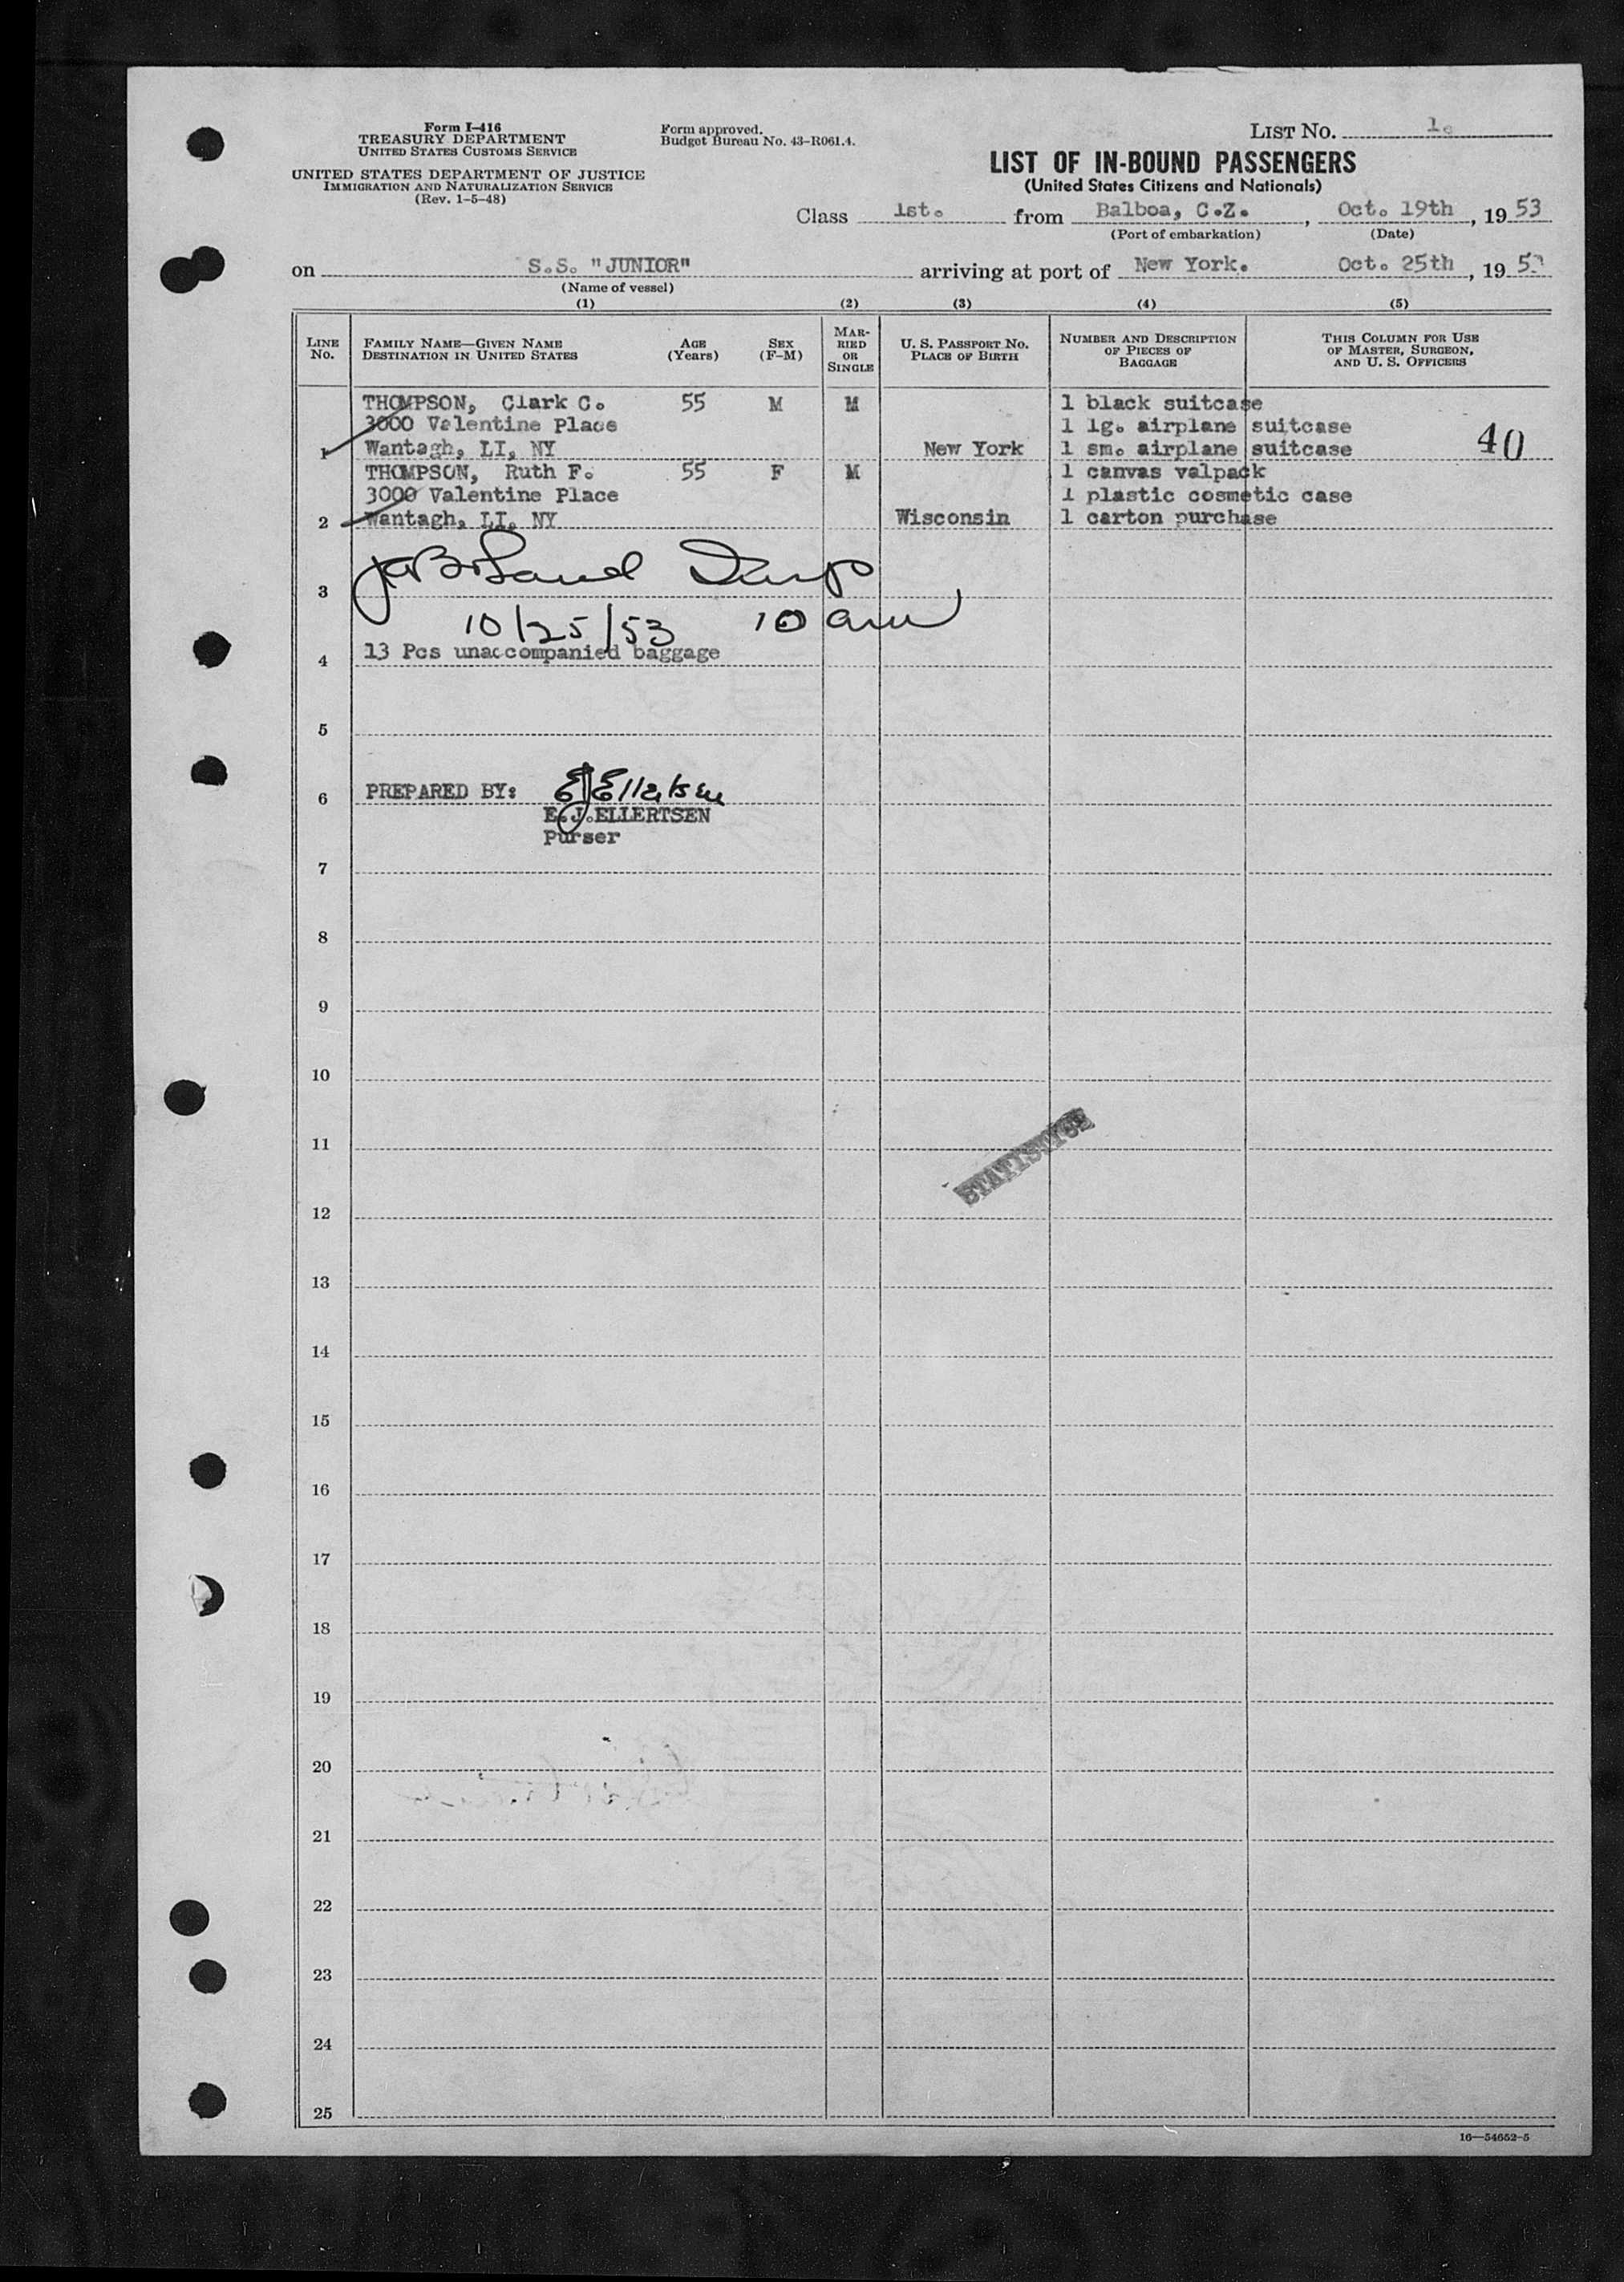 Form I-416
TREASURY DEPARTMENT
UNITED STATES CUSTOMS SERVICE
UNITED STATES DEPARTMENT OF JUSTICE
IMMIGRATION AND NATURALIZATION SERVICE
(Rev. 1-5-48)
Form approved.
Budget Bureau No. 43-R061.4.
LIST NO. 1.
LIST OF IN-BOUND PASSENGERS
(United States Citizens and Nationals)
Class 1st. from Balboa, C.Z. , Oct. 19th , 19 53
(Port of embarkation) (Date)
on S.S. "JUNIOR" arriving at port of New York. Oct. 25th , 19 53
(Name of vessel)
(1) (2) (3) (4) (5)
LINE NO.
FAMILY NAME—GIVEN NAME
DESTINATION IN UNITED STATES
AGE (Years)
SEX (F-M)
MARRIED OR SINGLE
U. S. PASSPORT NO.
PLACE OF BIRTH
NUMBER AND DESCRIPTION OF PIECES OF BAGGAGE
THIS COLUMN FOR USE OF MASTER, SURGEON, AND U. S. OFFICERS
THOMPSON, Clark C. 55 M M 1 black suitcase
3000 Valentine Place 1 lg. airplane suitcase
1 Wantagh, LI, NY New York 1 sm. airplane suitcase 40
THOMPSON, Ruth F. 55 F M 1 canvas valpack
3000 Valentine Place 1 plastic cosmetic case
2 Wantagh, LI, NY Wisconsin 1 carton purchase
3
10/25/53 10 am
4 13 Pcs unaccompanied baggage
5
6 PREPARED BY: EJEllertsen
E.J.ELLERTSEN
Purser
7
8
9
10
11
STATISTICS
12
13
14
15
16
17
18
19
20
21
22
23
24
25
16—54652-5